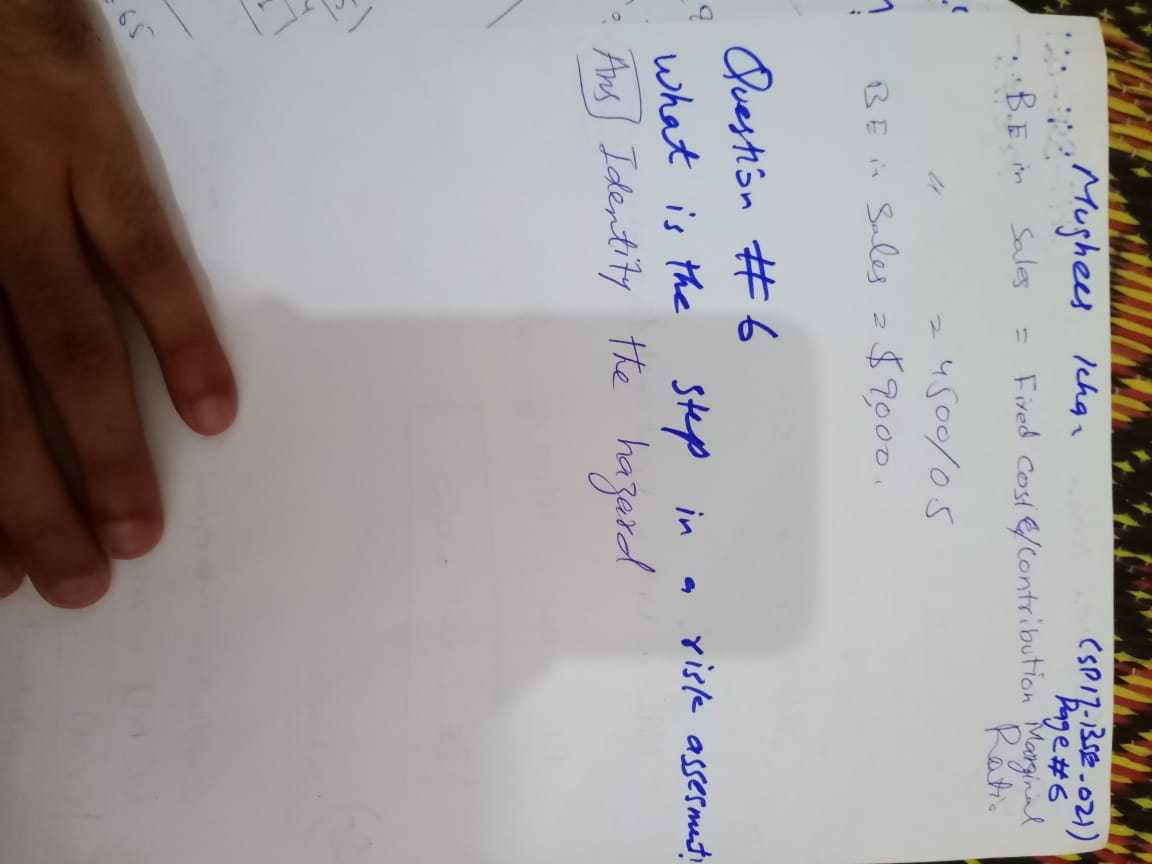 Mughees Ichan (SP17-BSE-021)
Page #6
B.E in Sales = Fixed cost(s)/Contribution Marginal Ratio
" = 4500/0.5
BE in Sales = $9,000.
Question #6
What is the step in a risk assesment
Ans Identity the hazard